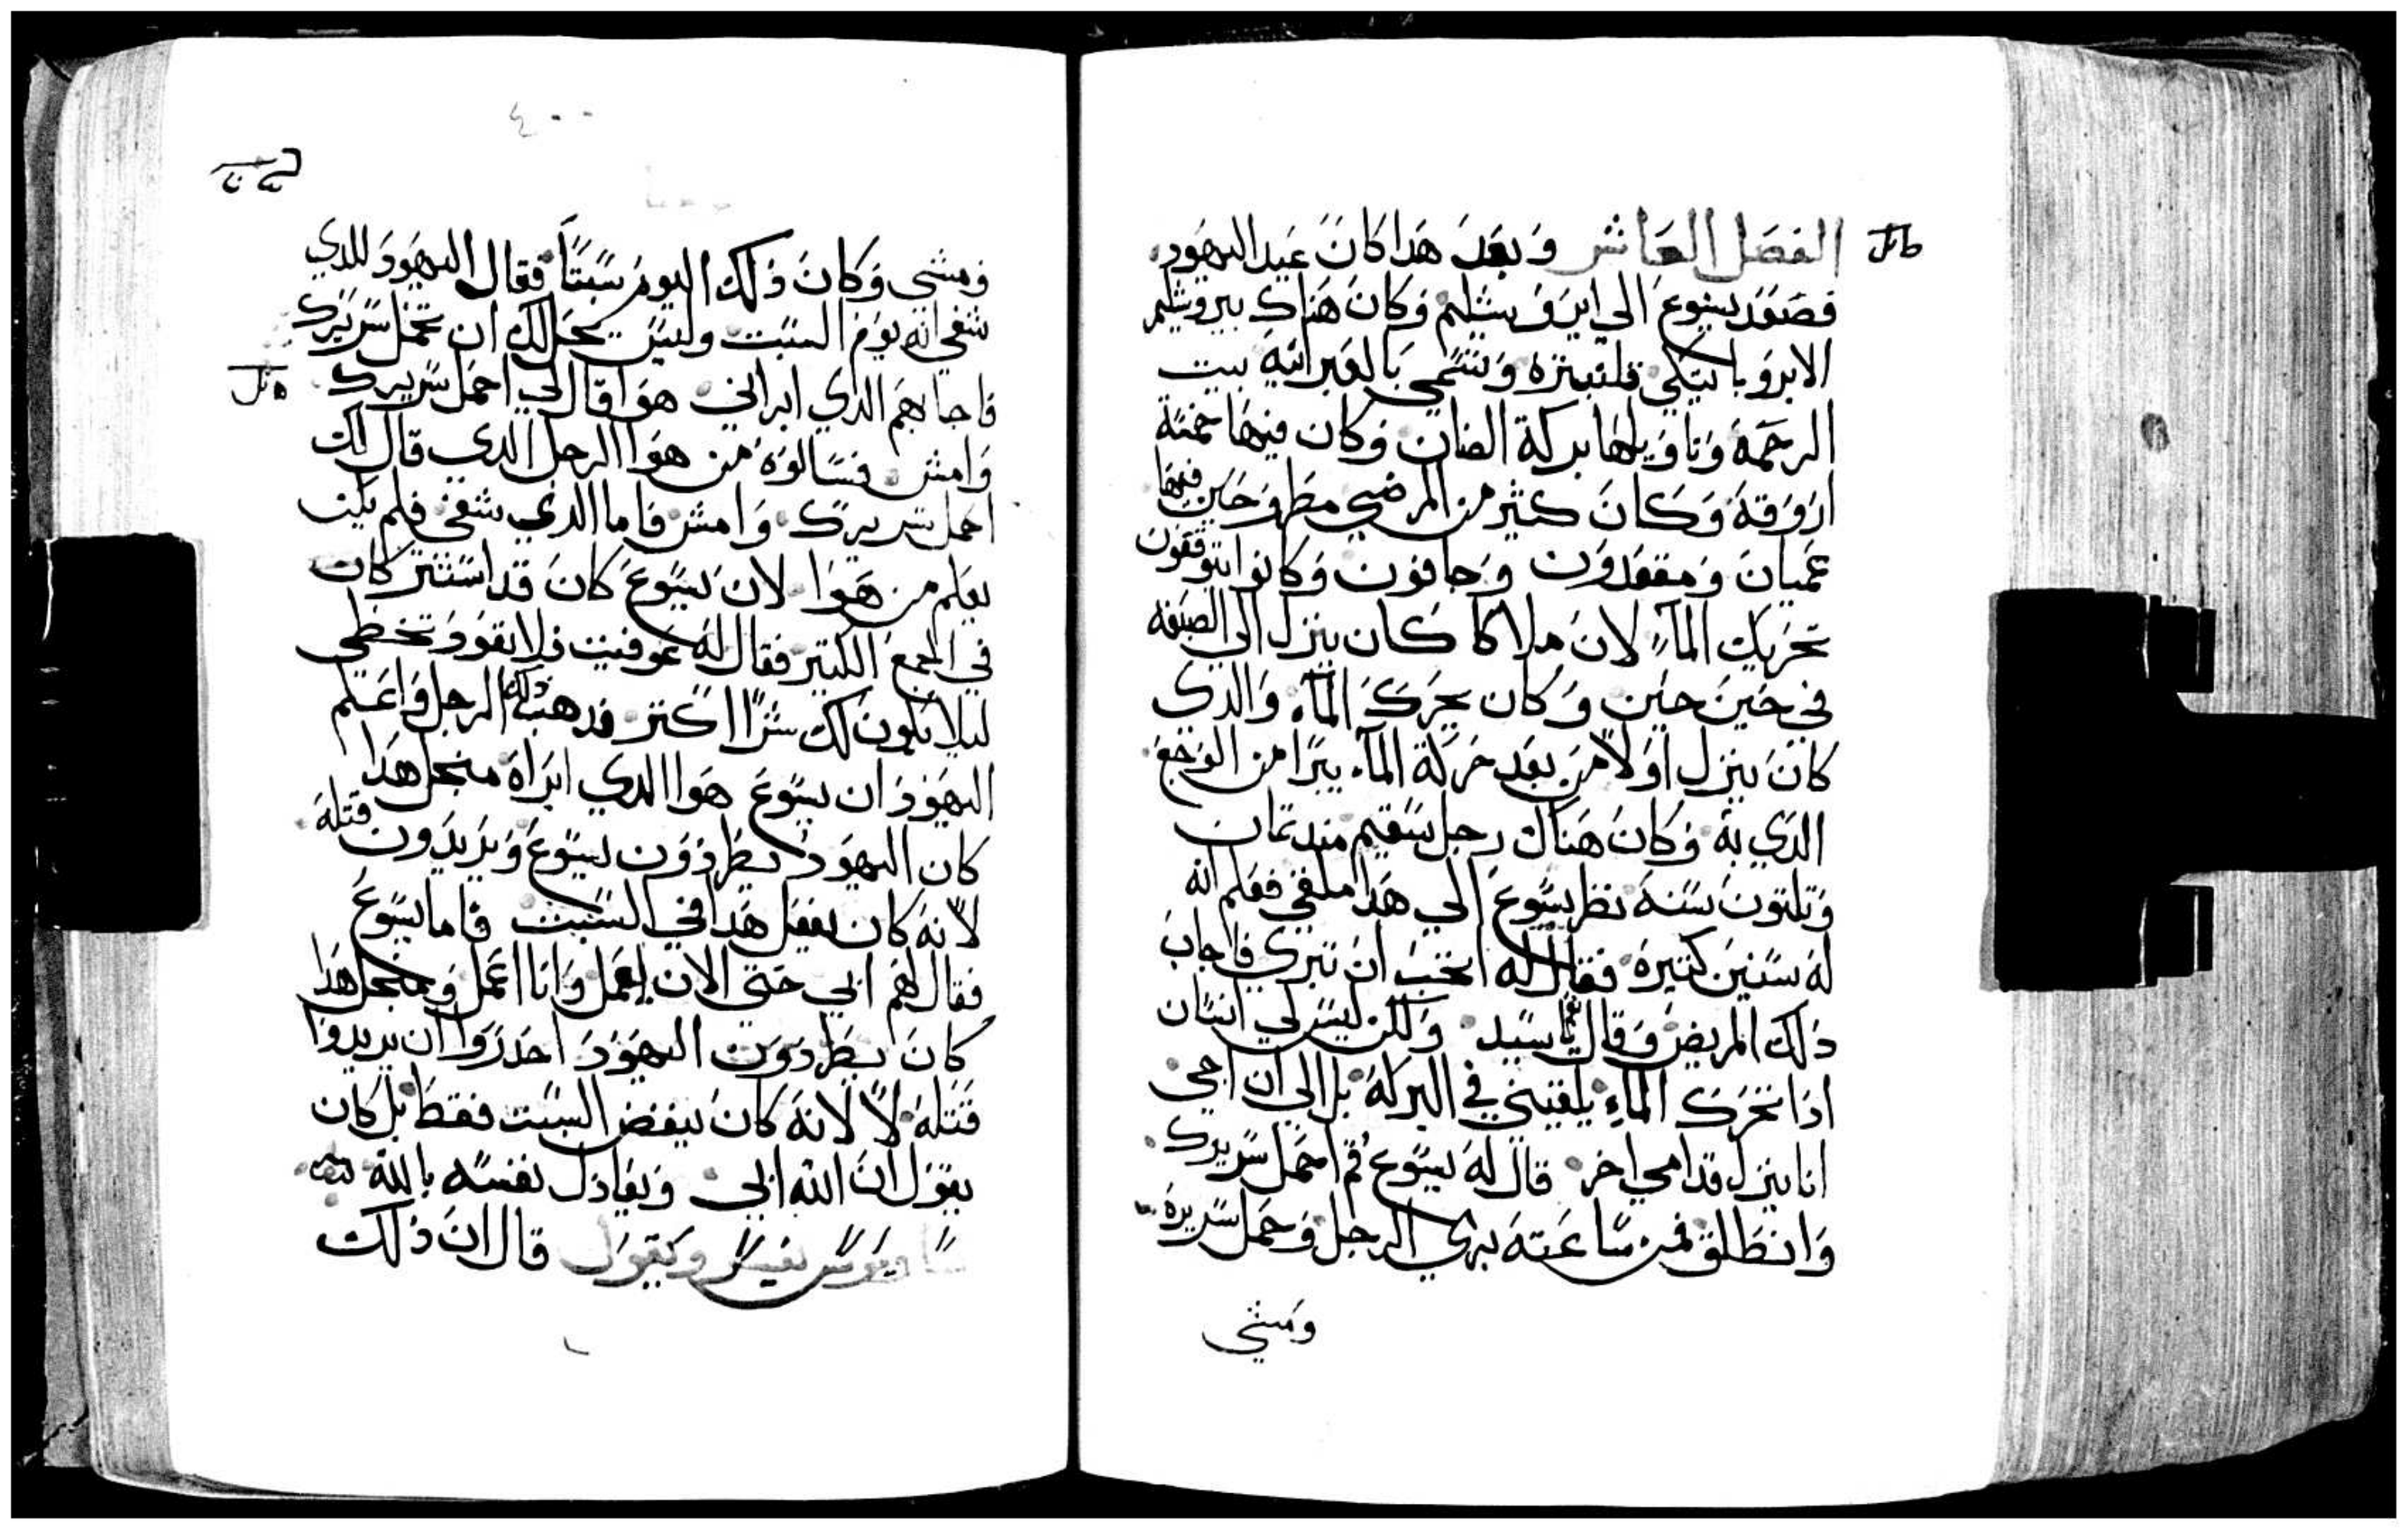 الفصل العاشر وبعد هدا كان عيد اليهود
فصعد يسوع الي ايروشليم وكان هناك بيروشليم
الابروباتيكي قلنبتره وتسمي بالعبرانيه بيت
الرحمة وتاويلها بركة الضان وكان فيها خمسة
اروقة وكان كثير من المرضي مطروحين فيها
عميان ومقعدون وجافون وكانوا يتوقعون
تحريك المآء لان ملاكا كان ينزل الي الصبغه
في حين حين وكان يحرك المآء والدي
كان ينزل اولا من بعد حركة المآء يبرا من الوجع
الدي به وكان هناك رجل سقيم مند تمان
وتلتون سنة نظر يسوع الي هدا ملقي فعلم انه
له سنين كتيرة فقال له اتحب ان تبري فاجاب
دلك المريض وقال يا سيد ولكن ليس لي انسان
ادا تحرك الماء يلقيني في البركة بل الي ان اجي
انا ينزل قدامي اخر قال له يسوع قم احمل سريرك
وانطلق فمن ساعته بري الرجل وحمل سريره
ومشي
٤٠٠
ومشي وكان دلك اليوم سبتا فقال اليهود للدي
شفي انه يوم السبت وليس يحل لك ان تحمل سريرك
فاجابهم الدي ابراني هوا قال لي احمل سريرك
وامش فسالوه من هوا الرجل الدي قال لك
احمل سريرك وامش فاما الدي شفي فلم يكن
يعلم من هوا لان يسوع كان قد استتر كان
في الجمع الكتير فقال له عوفيت فلا تعود تخطي
ليلا يكون لك شرا اكتر فدهب دلك الرجل واعلم
اليهود ان يسوع هوا الدي ابراه منجل هدا
كان اليهود يطردون يسوع ويريدون قتله
لانه كان يفعل هدا في السبت فاما يسوع
فقال لهم ابي حتي الان يعمل وانا اعمل ومنجل هدا
كان يطردون اليهود احدروا ان يريدوا
قتله لا لانه كان ينقض السبت فقط بل كان
يقول ان الله ابي ويعادل نفسه بالله
يفسر ويقول قال ان دلك